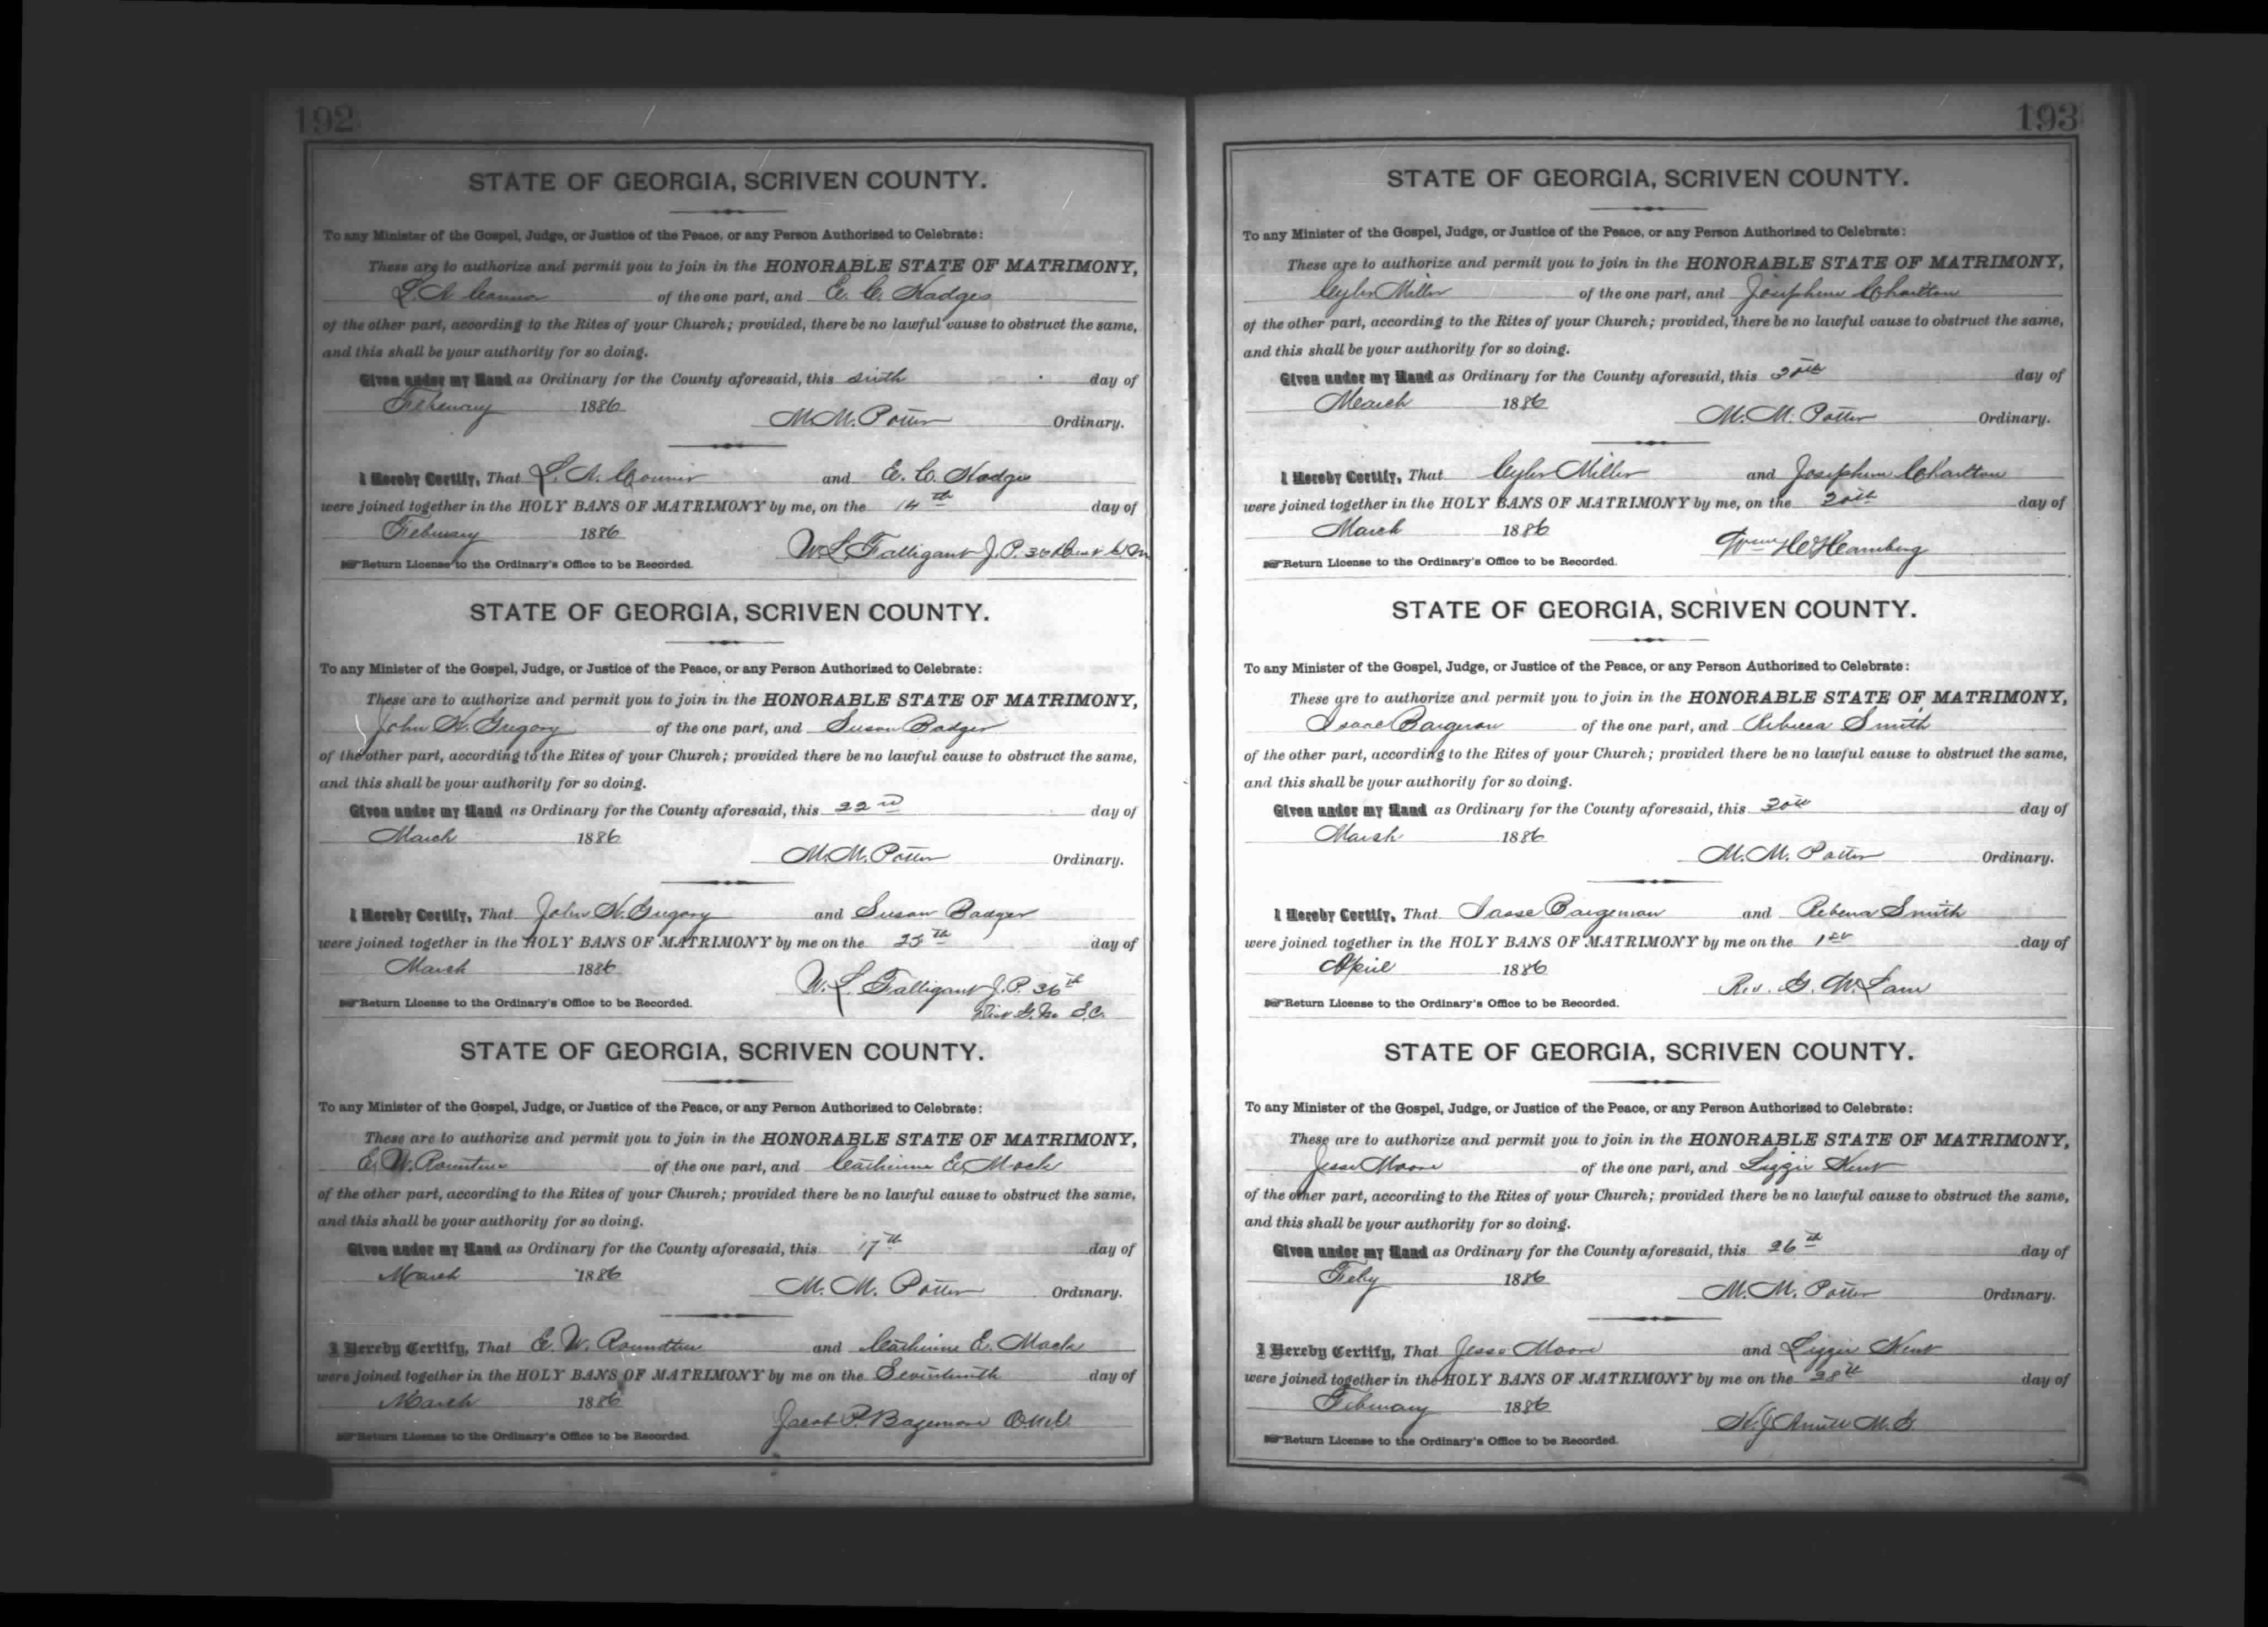 192
STATE OF GEORGIA, SCRIVEN COUNTY.
To any Minister of the Gospel, Judge, or Justice of the Peace, or any Person Authorized to Celebrate:
These are to authorize and permit you to join in the HONORABLE STATE OF MATRIMONY,
of the one part, and E. C. Hodges
of the other part, according to the Rites of your Church; provided, there be no lawful cause to obstruct the same,
and this shall be your authority for so doing.
Given under my Hand as Ordinary for the County aforesaid, this sixth day of
February 1886 M. M. Potter Ordinary.
I Hereby Certify, That L. A. Conner and E. C. Hodges
were joined together in the HOLY BANS OF MATRIMONY by me, on the 14th day of
February 1886
W. L. Falligant J. P. 36
Return License to the Ordinary's Office to be Recorded.
STATE OF GEORGIA, SCRIVEN COUNTY.
To any Minister of the Gospel, Judge, or Justice of the Peace, or any Person Authorized to Celebrate:
These are to authorize and permit you to join in the HONORABLE STATE OF MATRIMONY,
John H. Gregory of the one part, and Susan Badger
of the other part, according to the Rites of your Church; provided there be no lawful cause to obstruct the same,
and this shall be your authority for so doing.
Given under my Hand as Ordinary for the County aforesaid, this 22nd day of
March 1886
M. M. Potter Ordinary.
I Hereby Certify, That John H. Gregory and Susan Badger
were joined together in the HOLY BANS OF MATRIMONY by me on the 25th day of
March 1886
W. L. Falligant J. P. 36th
Return License to the Ordinary's Office to be Recorded.
Dist G. M. S. C.
STATE OF GEORGIA, SCRIVEN COUNTY.
To any Minister of the Gospel, Judge, or Justice of the Peace, or any Person Authorized to Celebrate:
These are to authorize and permit you to join in the HONORABLE STATE OF MATRIMONY,
E. W. Rountree of the one part, and Catherine E. Mock
of the other part, according to the Rites of your Church; provided there be no lawful cause to obstruct the same,
and this shall be your authority for so doing.
Given under my Hand as Ordinary for the County aforesaid, this 17th day of
March 1886
M. M. Potter Ordinary.
I Hereby Certify, That E. W. Roundtree and Catherine E. Mock
were joined together in the HOLY BANS OF MATRIMONY by me on the Seventeenth day of
March 1886
Jacob P.
Return License to the Ordinary's Office to be Recorded.
193
STATE OF GEORGIA, SCRIVEN COUNTY.
To any Minister of the Gospel, Judge, or Justice of the Peace, or any Person Authorized to Celebrate:
These are to authorize and permit you to join in the HONORABLE STATE OF MATRIMONY,
Cyler Miller of the one part, and Josephine Charlton
of the other part, according to the Rites of your Church; provided, there be no lawful cause to obstruct the same,
and this shall be your authority for so doing.
Given under my Hand as Ordinary for the County aforesaid, this 20th day of
March 1886
M. M. Potter Ordinary.
I Hereby Certify, That Cyler Miller and Josephine Charlton
were joined together in the HOLY BANS OF MATRIMONY by me, on the 20th day of
March 1886
Wm
Return License to the Ordinary's Office to be Recorded.
STATE OF GEORGIA, SCRIVEN COUNTY.
To any Minister of the Gospel, Judge, or Justice of the Peace, or any Person Authorized to Celebrate:
These are to authorize and permit you to join in the HONORABLE STATE OF MATRIMONY,
Isaac of the one part, and Rebecca Smith
of the other part, according to the Rites of your Church; provided there be no lawful cause to obstruct the same,
and this shall be your authority for so doing.
Given under my Hand as Ordinary for the County aforesaid, this 30th day of
March 1886
M. M. Potter Ordinary.
I Hereby Certify, That Bargeman and Smith
were joined together in the HOLY BANS OF MATRIMONY by me on the 1st day of
April 1886
Rev. G. W.
Return License to the Ordinary's Office to be Recorded.
STATE OF GEORGIA, SCRIVEN COUNTY.
To any Minister of the Gospel, Judge, or Justice of the Peace, or any Person Authorized to Celebrate:
These are to authorize and permit you to join in the HONORABLE STATE OF MATRIMONY,
Jesse Moore of the one part, and Lizzie Kent
of the other part, according to the Rites of your Church; provided there be no lawful cause to obstruct the same,
and this shall be your authority for so doing.
Given under my Hand as Ordinary for the County aforesaid, this 26th day of
Feby 1886
M. M. Potter Ordinary.
I Hereby Certify, That Jesse Moore and Lizzie Kent
were joined together in the HOLY BANS OF MATRIMONY by me on the 28th day of
February 1886
H. J. Arnett M. G.
Return License to the Ordinary's Office to be Recorded.